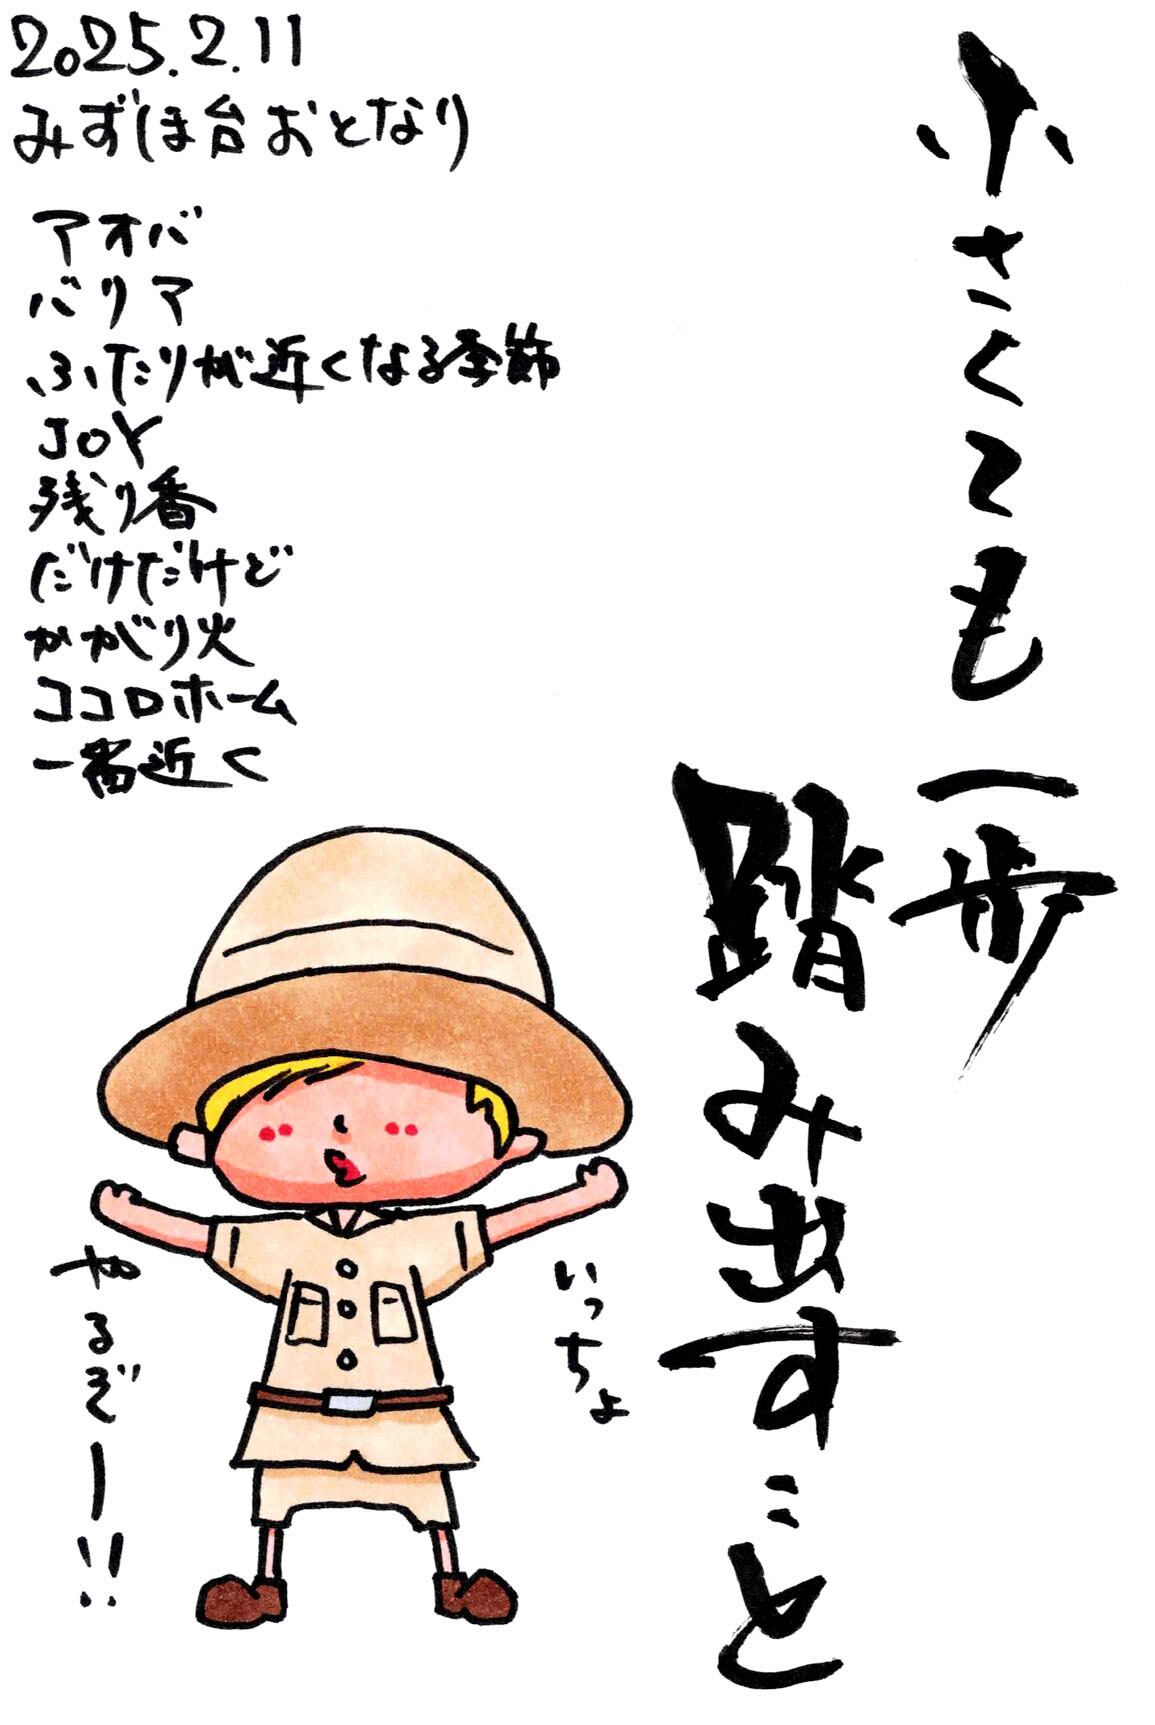 2025.2.11
みずほ台おとなり
アオバ
バリア
ふたりが近くなる季節
JOY
残り香
だけだけど
かがり火
ココロホーム
一番近く
小さくても一歩
踏み出すこと
いっちょ
やるぞー!!